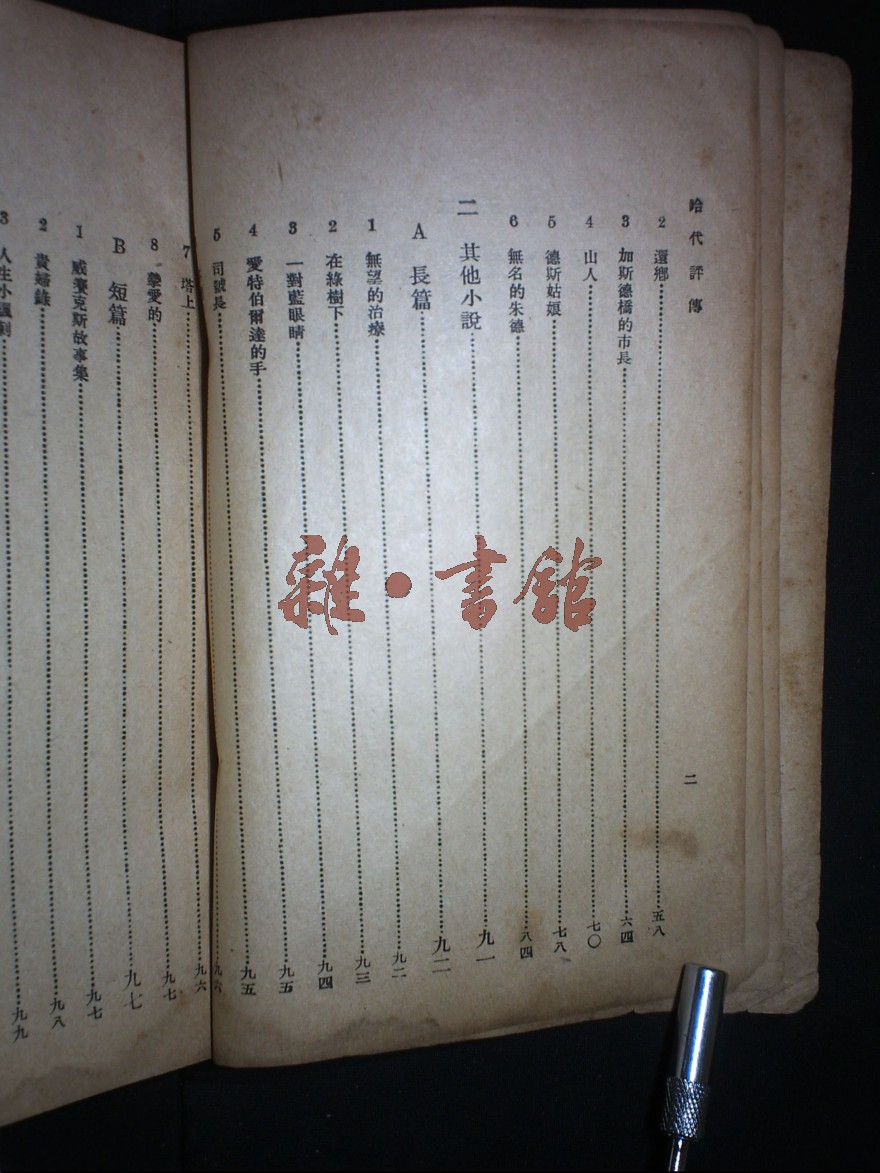 哈代評傳
二
2 還鄉 五八
3 加斯德橋的市長 六四
4 山人 七〇
5 德斯姑娘 七八
6 無名的朱德 八四
二 其他小說 九一
A 長篇 九二
1 無望的治療 九二
2 在綠樹下 九三
3 一對藍眼睛 九四
4 愛特伯爾達的手 九五
5 司號長 九五
九六
7 塔上 九六
8 摯愛的 九七
B 短篇 九七
1 威賽克斯故事集 九七
2 貴婦錄 九八
3 人生小諷刺 九九
雜·書館